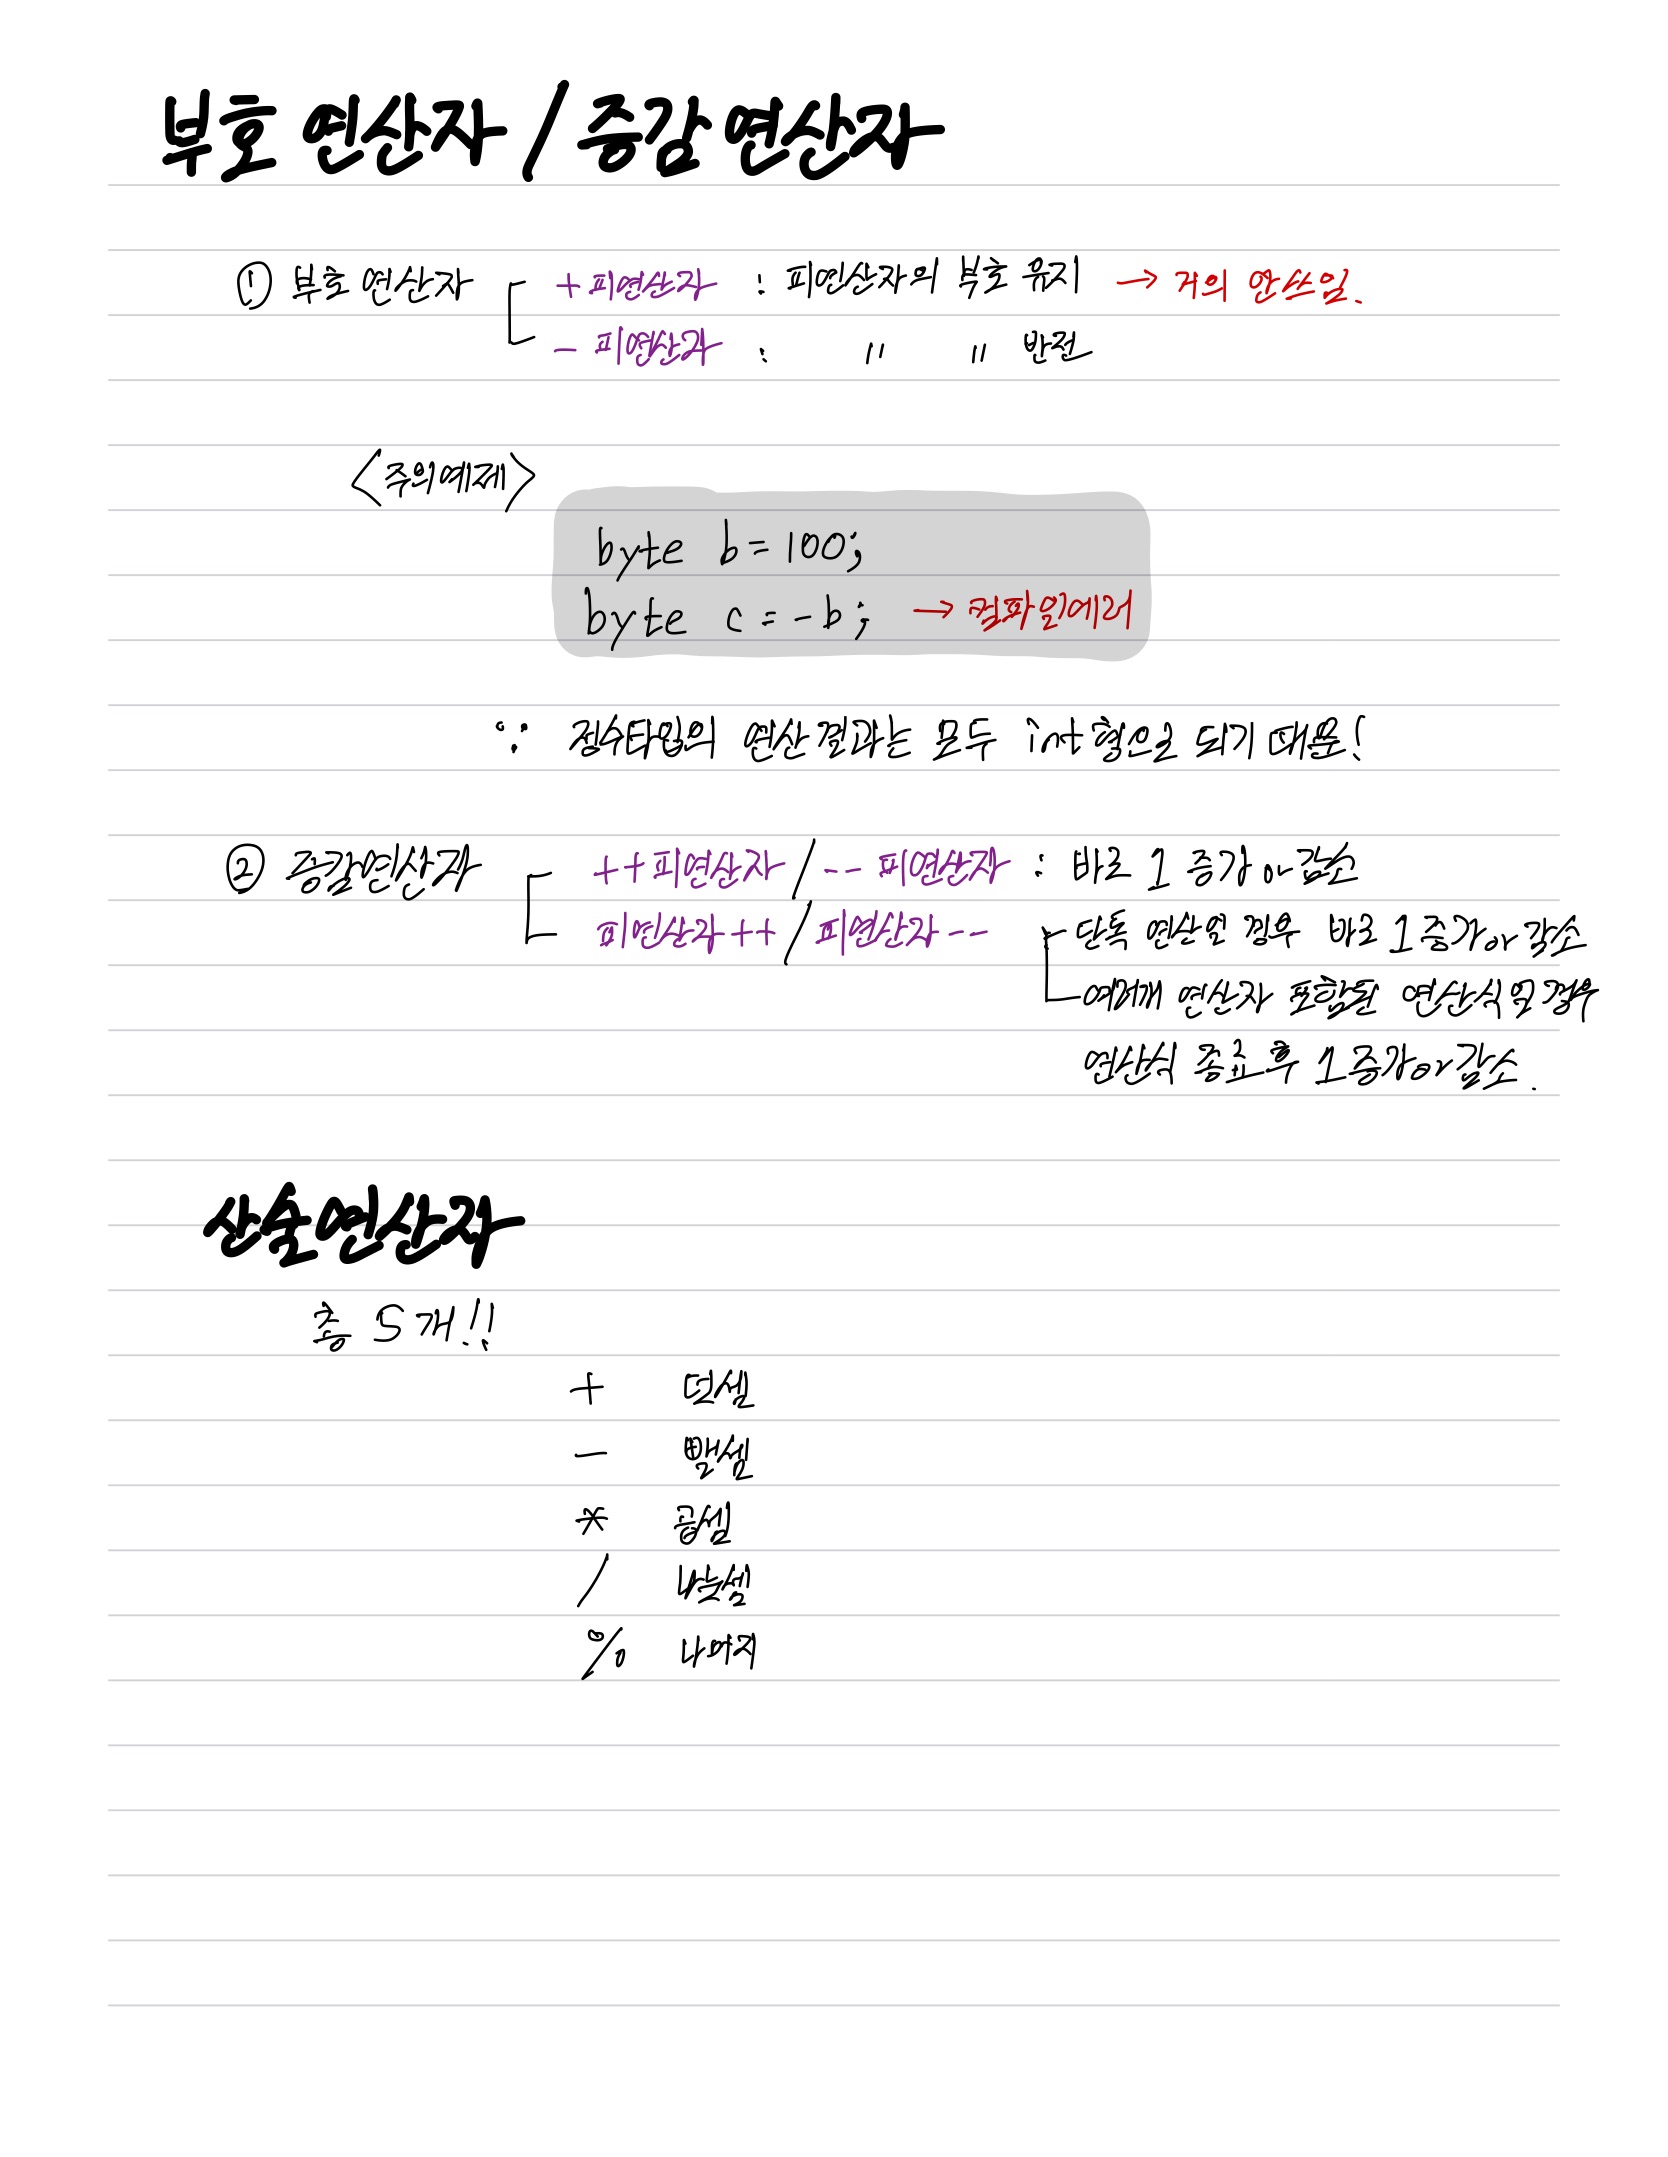 부호 연산자 / 증감 연산자
① 부호 연산자 +피연산자 : 피연산자의 부호 유지 → 거의 안쓰임.
- 피연산자 : 〃 〃 반전
<주의예제>
byte b = 100;
byte c = -b; → 컴파일에러
∵ 정수타입의 연산결과는 모두 int형으로 되기 때문!
② 증감연산자 ++피연산자 / -- 피연산자 : 바로 1 증가 or 감소
피연산자++ / 피연산자-- 단독 연산일 경우 바로 1증가 or 감소
여러개 연산자 포함된 연산식일 경우
연산식 종료 후 1증가 or 감소.
산술연산자
총 5개!!
+ 덧셈
- 뺄셈
* 곱셈
/ 나눗셈
% 나머지